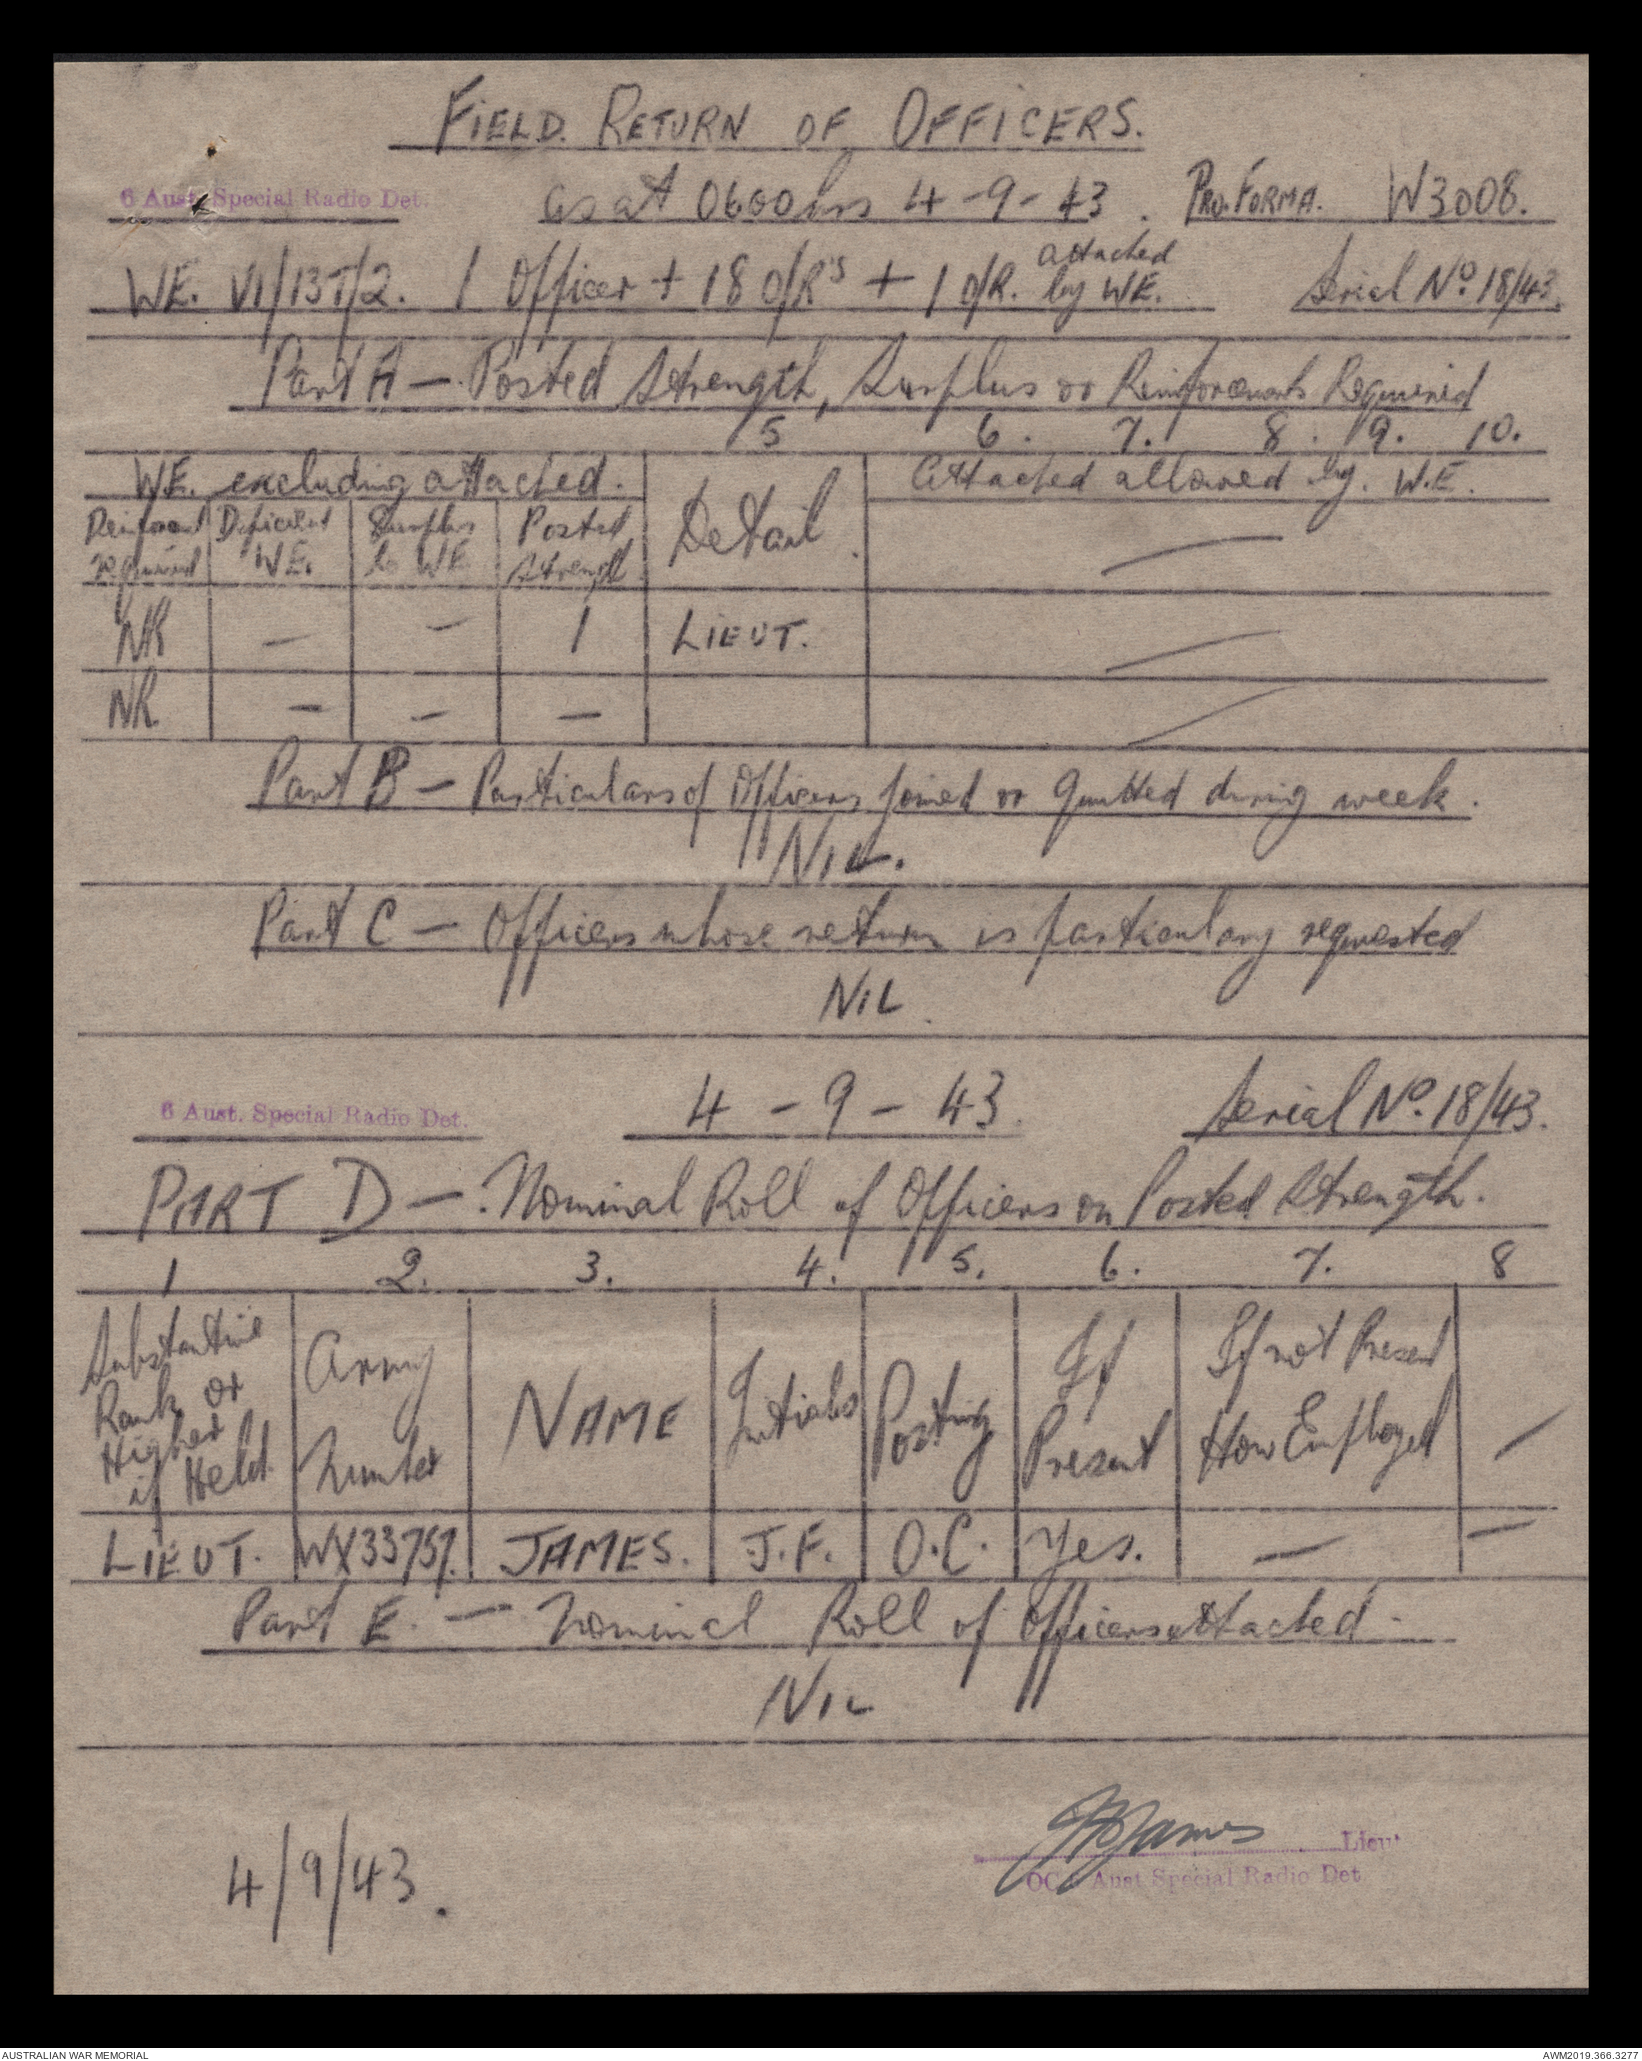 FIELD. RETURN OF OFFICERS.
6 Aust. Special Radio Det.
as at 0600 hrs 4-9-43. PRO.FORMA. W3008.
WE. VI/13T/2. 1 Officer + 18 O/R's + 1 O/R. attached by WE. Serial No. 18/43.
Part A — Posted Strength, Surplus or Reinforcements Required
5 6. 7. 8. 9. 10.
WE. excluding attached. Detail. Attached allowed by. W.E.
Reinforcement required Deficient WE. Surplus to WE Posted Strength —
NR — — 1 LIEUT. —
NR. — — — —
Part B — Particulars of Officers joined or quitted during week.
NIL.
Part C — Officers whose return is particulary requested
NIL.
6 Aust. Special Radio Det. 4-9-43. Serial No. 18/43.
PART D — Nominal Roll of Officers on Posted Strength.
1 2. 3. 4. 5. 6. 7. 8
Substantive Rank or Higher if Held Army Number NAME Initials Posting If Present If not Present How Employed —
LIEUT. WX33757. JAMES. J.F. O.C. Yes. — —
Part E. — Nominal Roll of Officers attached.
NIL
JFJames Lieut
4/9/43.
OC Aust Special Radio Det
AUSTRALIAN WAR MEMORIAL AWM2019.366.3277